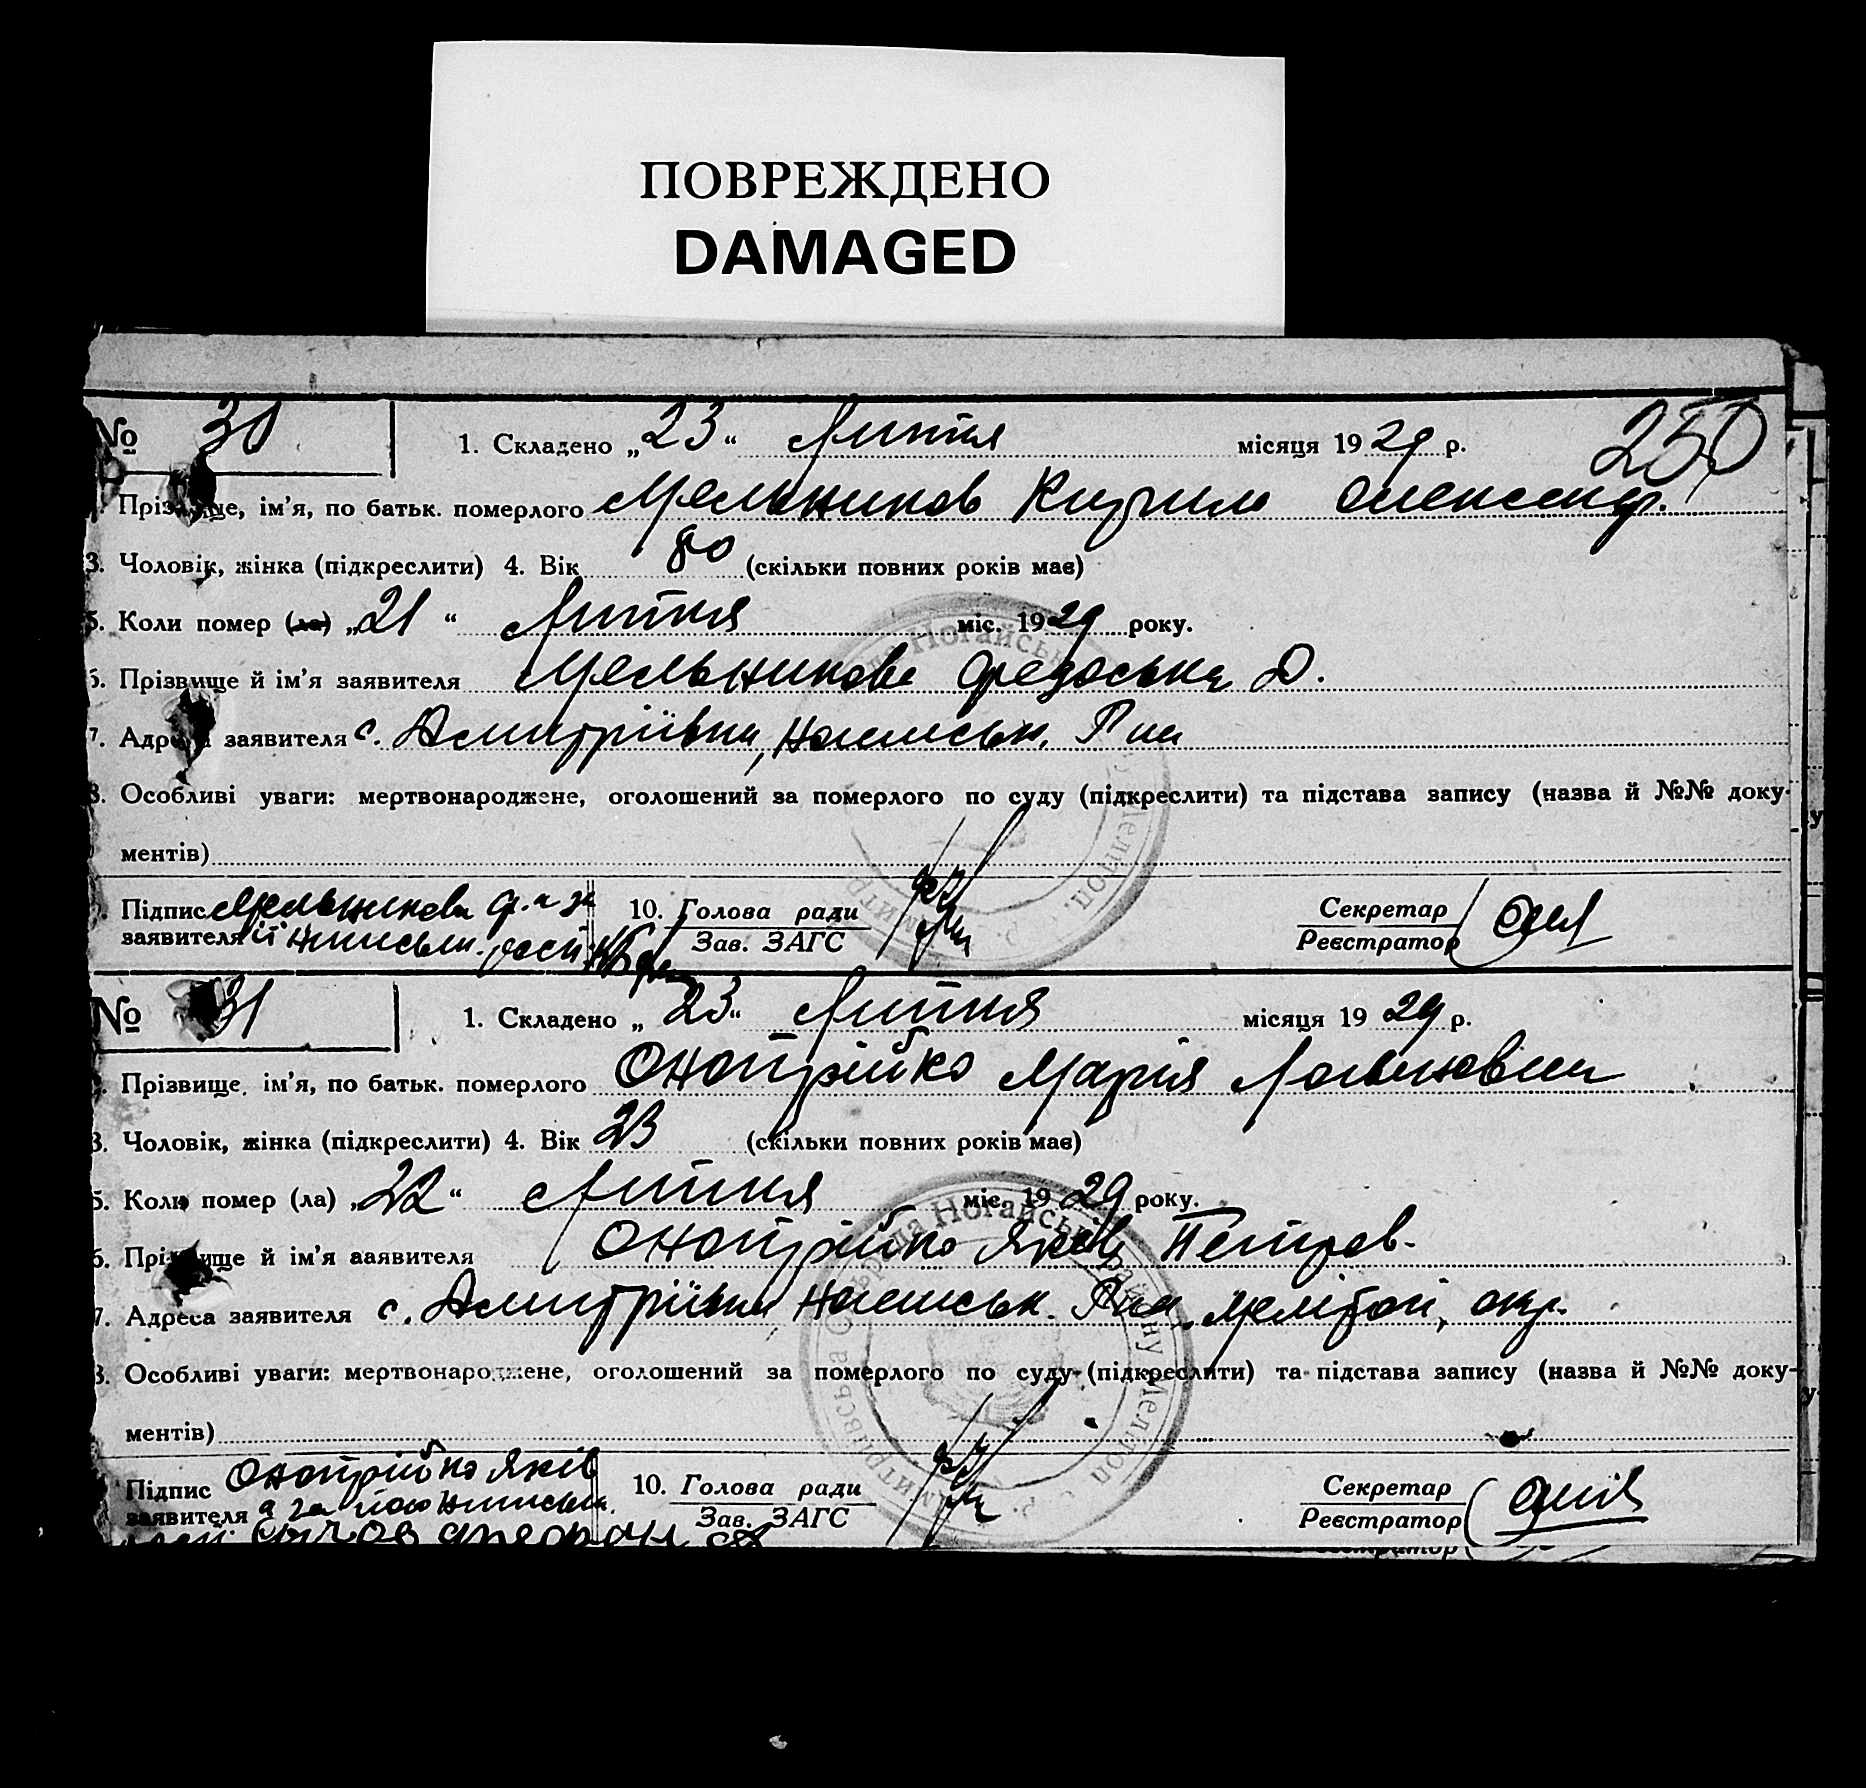 ПОВРЕЖДЕНО
DAMAGED
№ 30 1. Складено „ 23 “ Лютня місяця 19 29 р. 250
Прізвище, ім’я, по батьк. померлого Мельников Кирило Олександр.
3. Чоловік, жінка (підкреслити) 4. Вік 80 (скільки повних років має)
5. Коли помер (ла) „ 21 “ Лютня міс. 19 29 року.
6. Прізвище й ім’я заявителя Мельникова Федоська Д.
7. Адреса заявителя с. Дмитрівка, Р на
8. Особливі уваги: мертвонароджене, оголошений за померлого по суду (підкреслити) та підстава запису (назва й №№ доку-
ментів)
Підпис Мельникова Ф. а за
заявителя її
10. Голова ради
Зав. ЗАГС
Секретар
Реєстратор
№ 31 1. Складено „ 23 “ Лютня місяця 19 29 р.
Прізвище, ім’я, по батьк. померлого Онопрійко Марія
3. Чоловік, жінка (підкреслити) 4. Вік 23 (скільки повних років має)
5. Коли помер (ла) „ 22 “ Лютня міс. 19 29 року.
6. Прізвище й ім’я ааявителя Онопрійко Яків Петров.
7. Адреса заявителя с. Дмитрівка, Р на Мелітоп. окр.
8. Особливі уваги: мертвонароджене, оголошений за померлого по суду (підкреслити) та підстава запису (назва й №№ доку-
ментів)
Підпис Онопрійко Яків
заявителя а за
10. Голова ради
Зав. ЗАГС
Секретар
Реєстратор